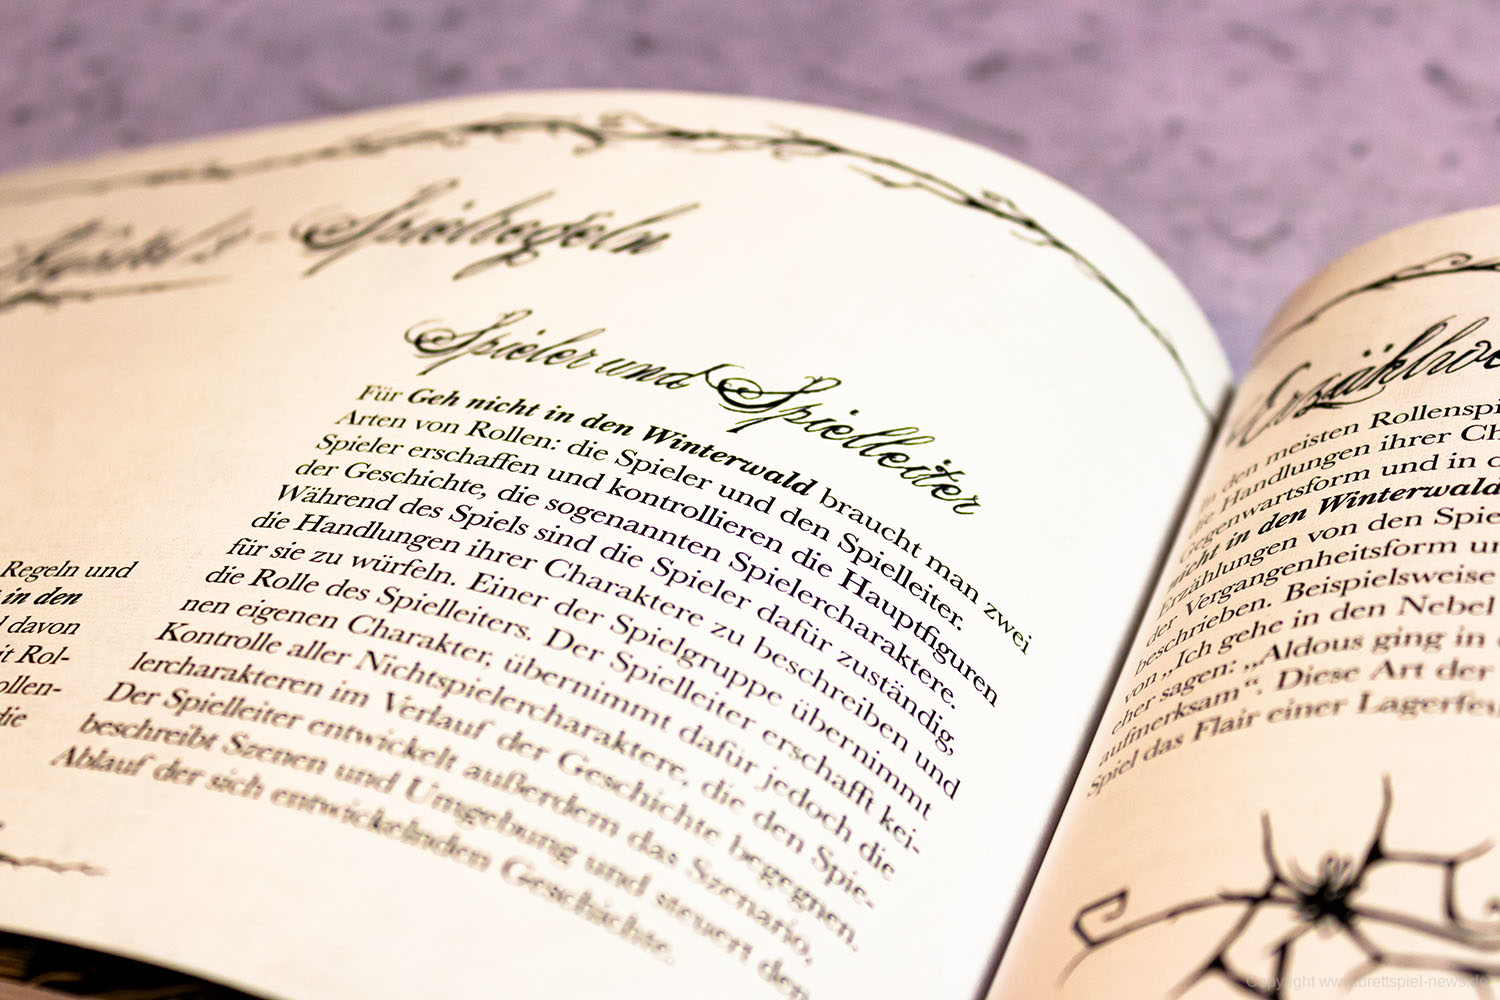 Kapitel 1 - Spielregeln
Regeln und
in den
davon
it Rol-
ollen-
die
Spieler und Spielleiter
Für Geh nicht in den Winterwald braucht man zwei
Arten von Rollen: die Spieler und den Spielleiter.
Spieler erschaffen und kontrollieren die Hauptfiguren
der Geschichte, die sogenannten Spielercharaktere.
Während des Spiels sind die Spieler dafür zuständig,
die Handlungen ihrer Charaktere zu beschreiben und
für sie zu würfeln. Einer der Spielgruppe übernimmt
die Rolle des Spielleiters. Der Spielleiter erschafft kei-
nen eigenen Charakter, übernimmt dafür jedoch die
Kontrolle aller Nichtspielercharaktere, die den Spie-
lercharakteren im Verlauf der Geschichte begegnen.
Der Spielleiter entwickelt außerdem das Szenario,
beschreibt Szenen und Umgebung und steuert den
Ablauf der sich entwickelnden Geschichte.
Erzählwe
den meisten Rollenspi
die Handlungen ihrer Ch
Gegenwartsform und in d
nicht in den Winterwald
Erzählungen von den Spie
der Vergangenheitsform un
beschrieben. Beispielsweise
von „Ich gehe in den Nebel
eher sagen: „Aldous ging in
aufmerksam“. Diese Art der
Spiel das Flair einer Lagerfeu
Copyright www.brettspiel-news.de